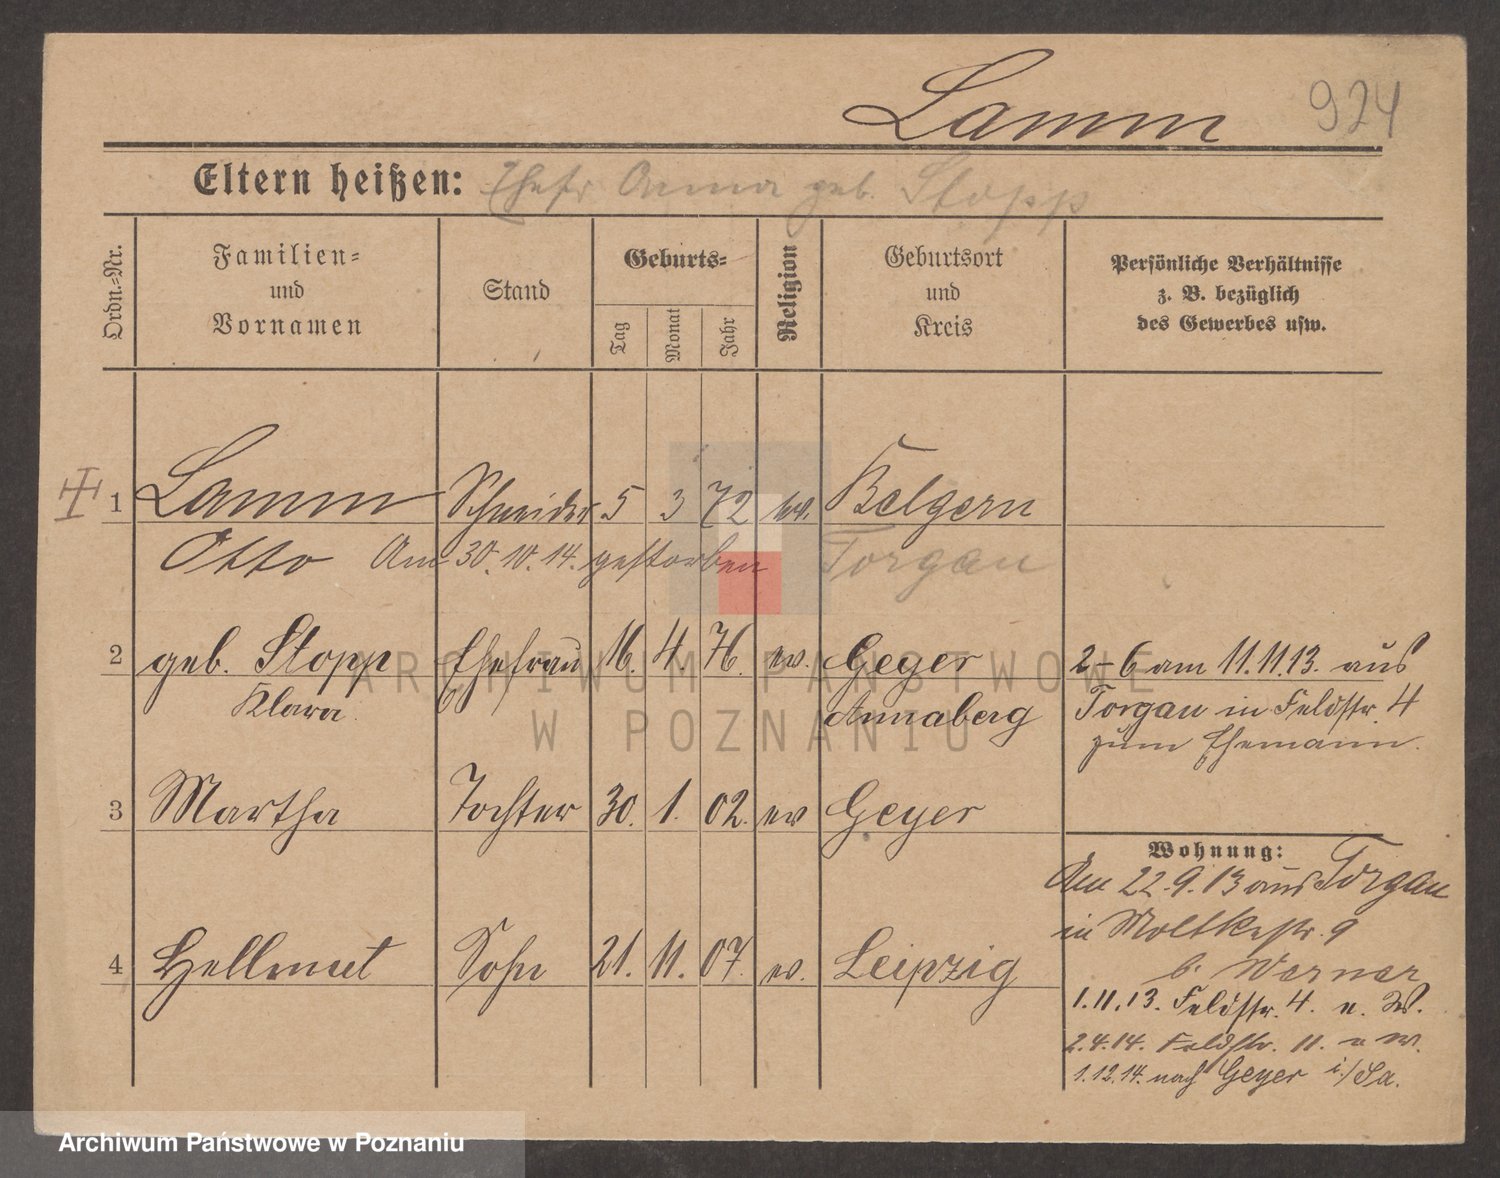 Lamm 924
Eltern heißen: Ehefr Anna geb. Stopp
Ordn.-Nr.
Familien-
und
Vornamen
Stand
Geburts-
Tag
Monat
Jahr
Religion
Geburtsort
und
Kreis
Persönliche Verhältnisse
z. B. bezüglich
des Gewerbes usw.
1 Lamm Schneider 5 3 72 ev. Belgern
Otto Am 30.10.14. gestorben Torgau
2 geb. Stopp Ehefrau 16. 4. 76. ev. Geyer
Klara Annaberg
2-6 am 11.11.13. aus
Torgau in Feldstr. 4
zum Ehemann.
3 Martha Tochter 30. 1. 02. ev Geyer
4 Hellmut Sohn 21. 11. 07. ev. Leipzig
Wohnung:
Am 22.9.13 aus Torgau
in Moltkestr. 9
b. Werner
1.11.13. Feldstr. 4. e. W.
2.4.14. Feldstr. 11. e W.
1.12.14. nach Geyer i./Sa.
ARCHIWUM PAŃSTWOWE
W POZNANIU
Archiwum Państwowe w Poznaniu